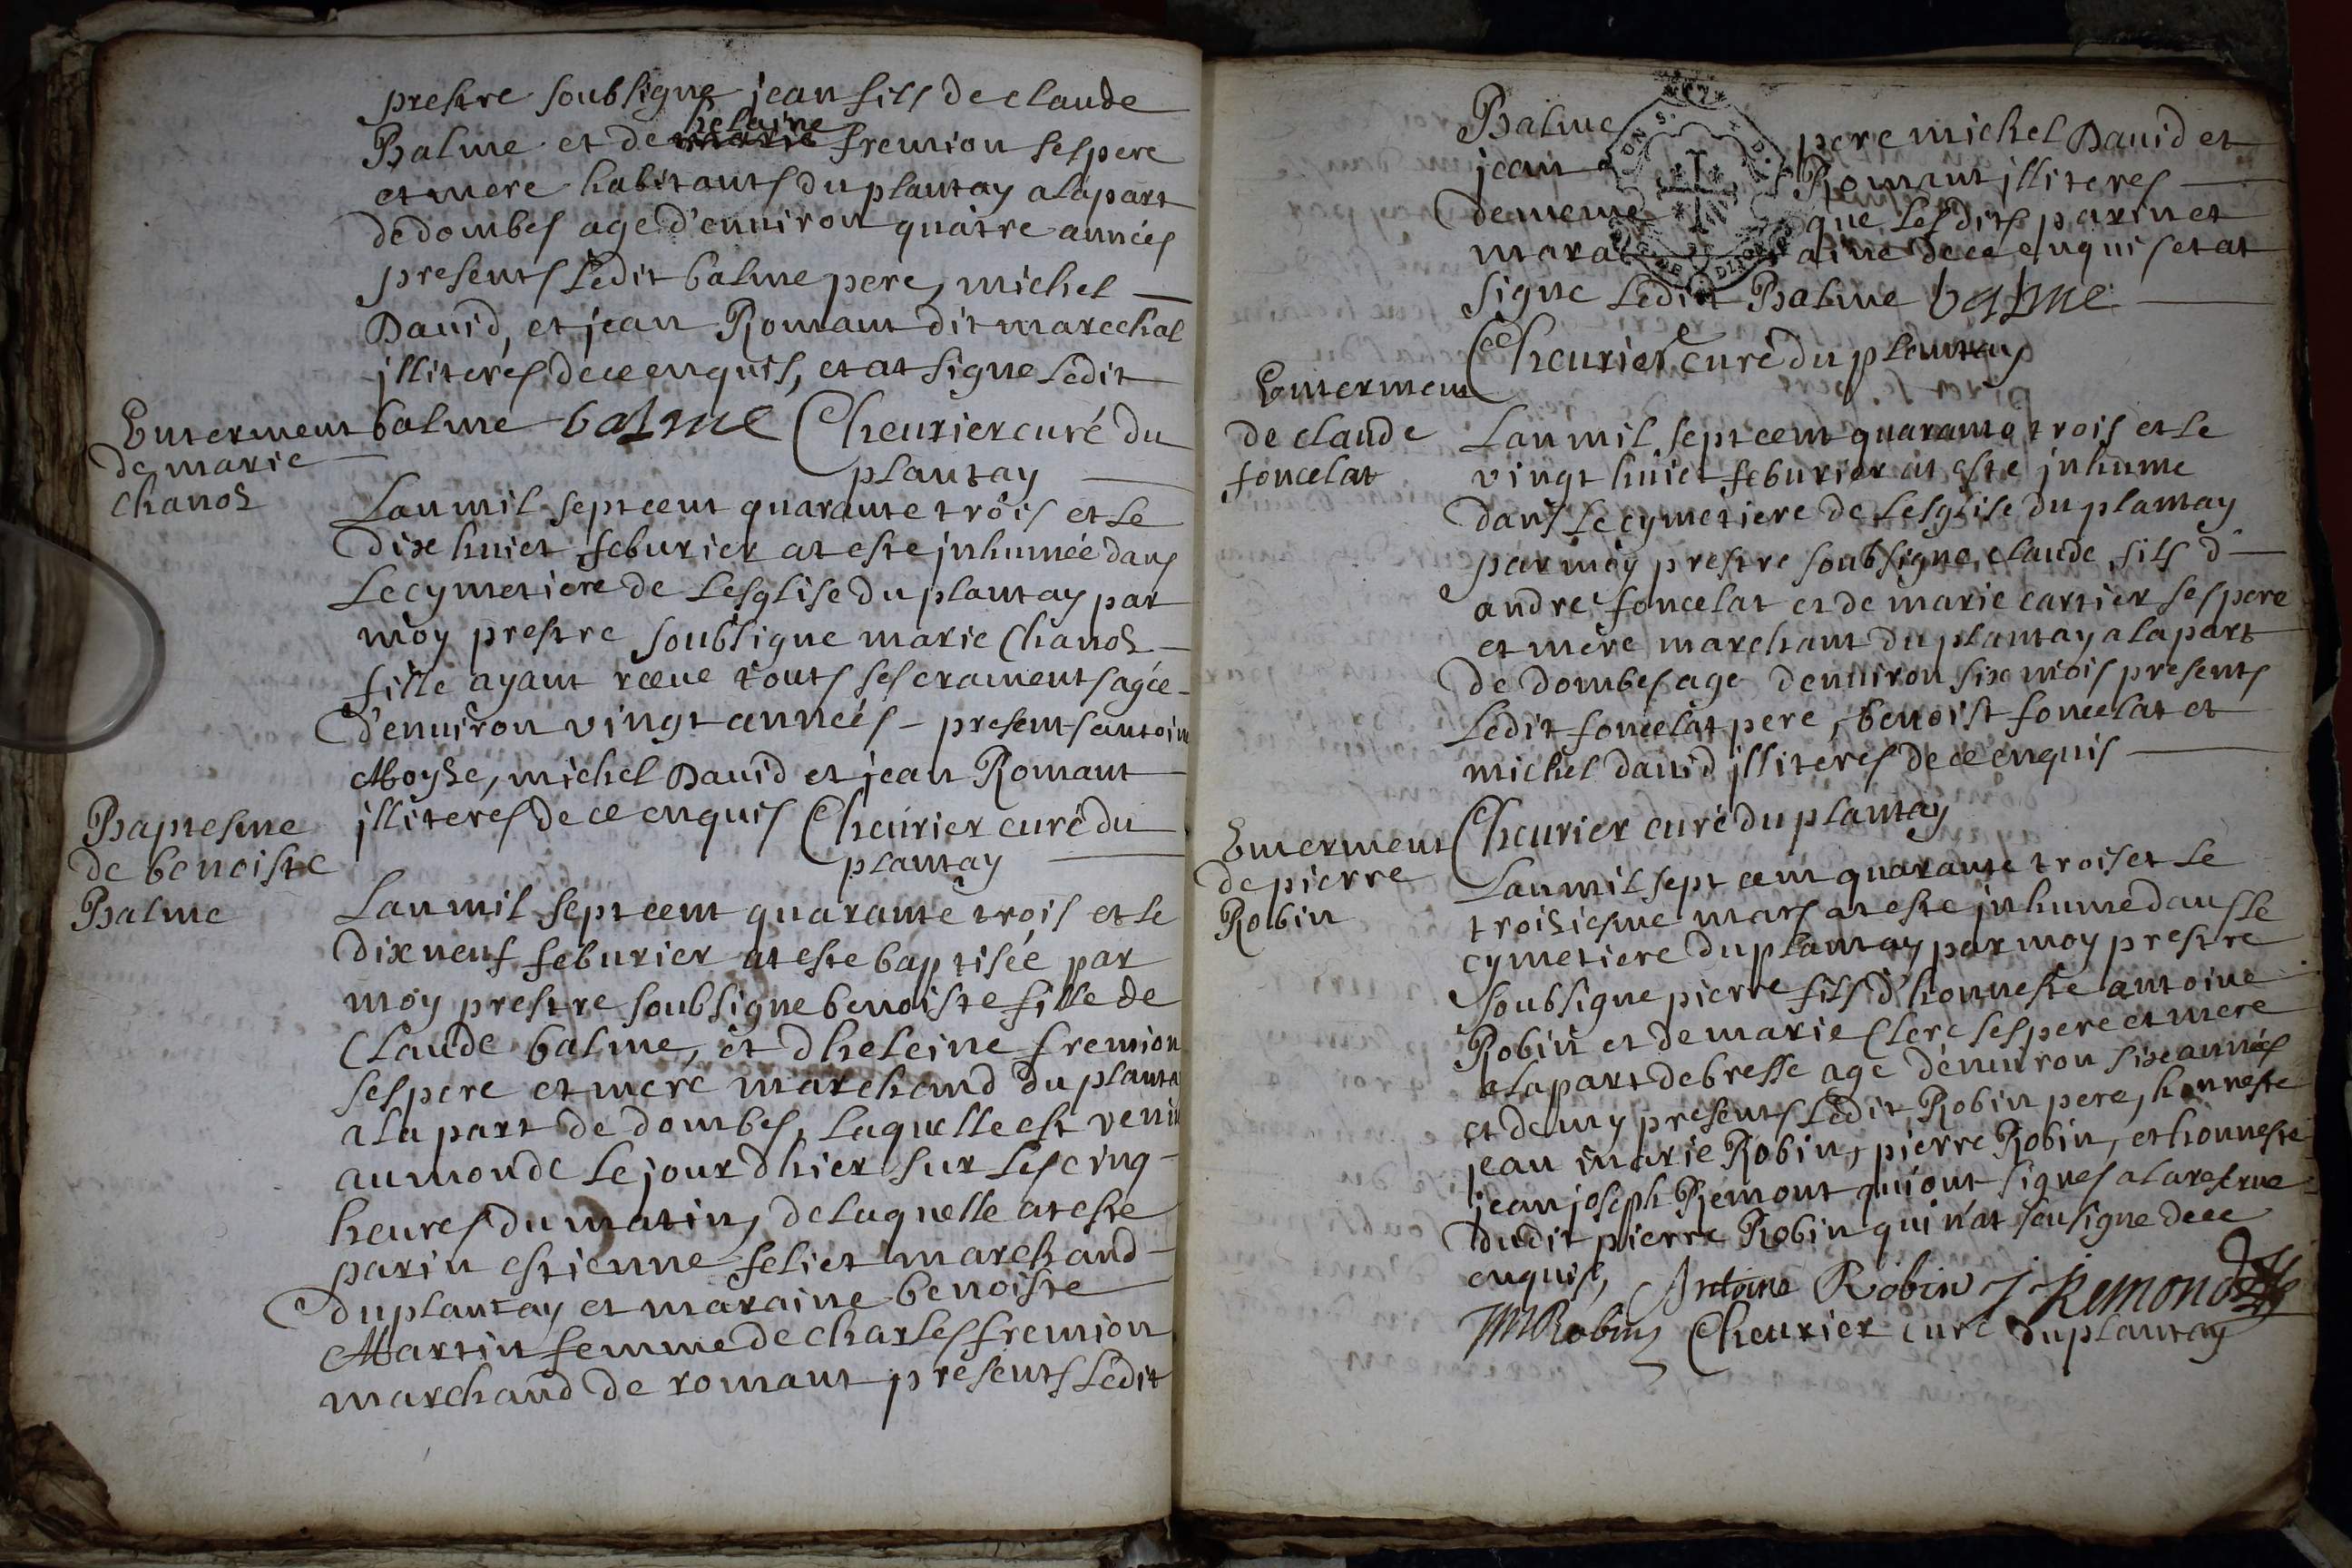 prestre soubsigne jean fils de claude
Balme et de helaine fremion ses pere
et mere habitants du plantay a la part
de dombes age d'enuiron quatre années
presents Ledit balme pere, michel
Dauid, et jean Romant dit marechal
jlliteres de ce enquis, et at signe Ledit
balme balme Cheurier curé du
plantay
Enterment
de marie
Chanoz
Lan mil sept cent quarante trois et Le
dix huict feburier at este jnhumée dans
Le cymetiere de Lesglise du plantay par
moy prestre soubsigne marie Chanoz
fille ayant rceue touts ses crements agée
d'enuiron vingt années - presents antoine
Moyse, michel Dauid et jean Romant
jlliteres de ce enquis Cheurier curé du
plantay
Baptesme
de benoiste
Balme
Lan mil sept cent quarante trois et Le
dix neuf feburier at este baptisée par
moy prestre soubsigne benoiste fille de
Claude balme, et dheleine fremion
ses pere et mere marchand du planta
a la part de dombes, laquelle est venu
au monde Le jour dhier sur Les cinq
heures du matin, de laquelle at este
parin estienne feliet marchand
du plantay et maraine benoiste
Martin femme de charles fremion
marchand de romant presents Ledit
Balme pere michel Dauid et
jean Romant jlliteres
de meme que Lesdits parin et
mara aine de ce enquis et at
signe Ledit Balme balme
Cheurier curé du plantay
Enterment
de claude
foncelat
Lan mil sept cent quarante trois et Le
vingt huict feburier at este jnhume
dans Le cymetiere de Lesglise du plantay
par moy prestre soubsigne claude fils d
andre foncelat et de marie cartier ses pere
et mere marchant du plantay a la part
de dombes age denuiron six mois presents
Ledit foncelat pere, benoist foncelat et
michel dauid jlliteres de ce enquis
Cheurier curé du plantay
Enterment
de pierre
Robin
Lan mil sept cent quarante trois et Le
troisiesme mars at este jnhume dans Le
cymetiere du plantay par moy prestre
soubsigne pierre fils d'honneste antoine
Robin et de marie Clerc ses pere et mere
a la part de bresse age d'enuiron six années
et demy presents Ledit Robin pere, honneste
jean marie Robin, pierre Robin, et honneste
jean joseph Remont qui ont signes a la resrue
dudit pierre Robin qui n'at seu signe de ce
enquis, Antoine Robin J J Remond
JM Robin Cheurier curé du plantay